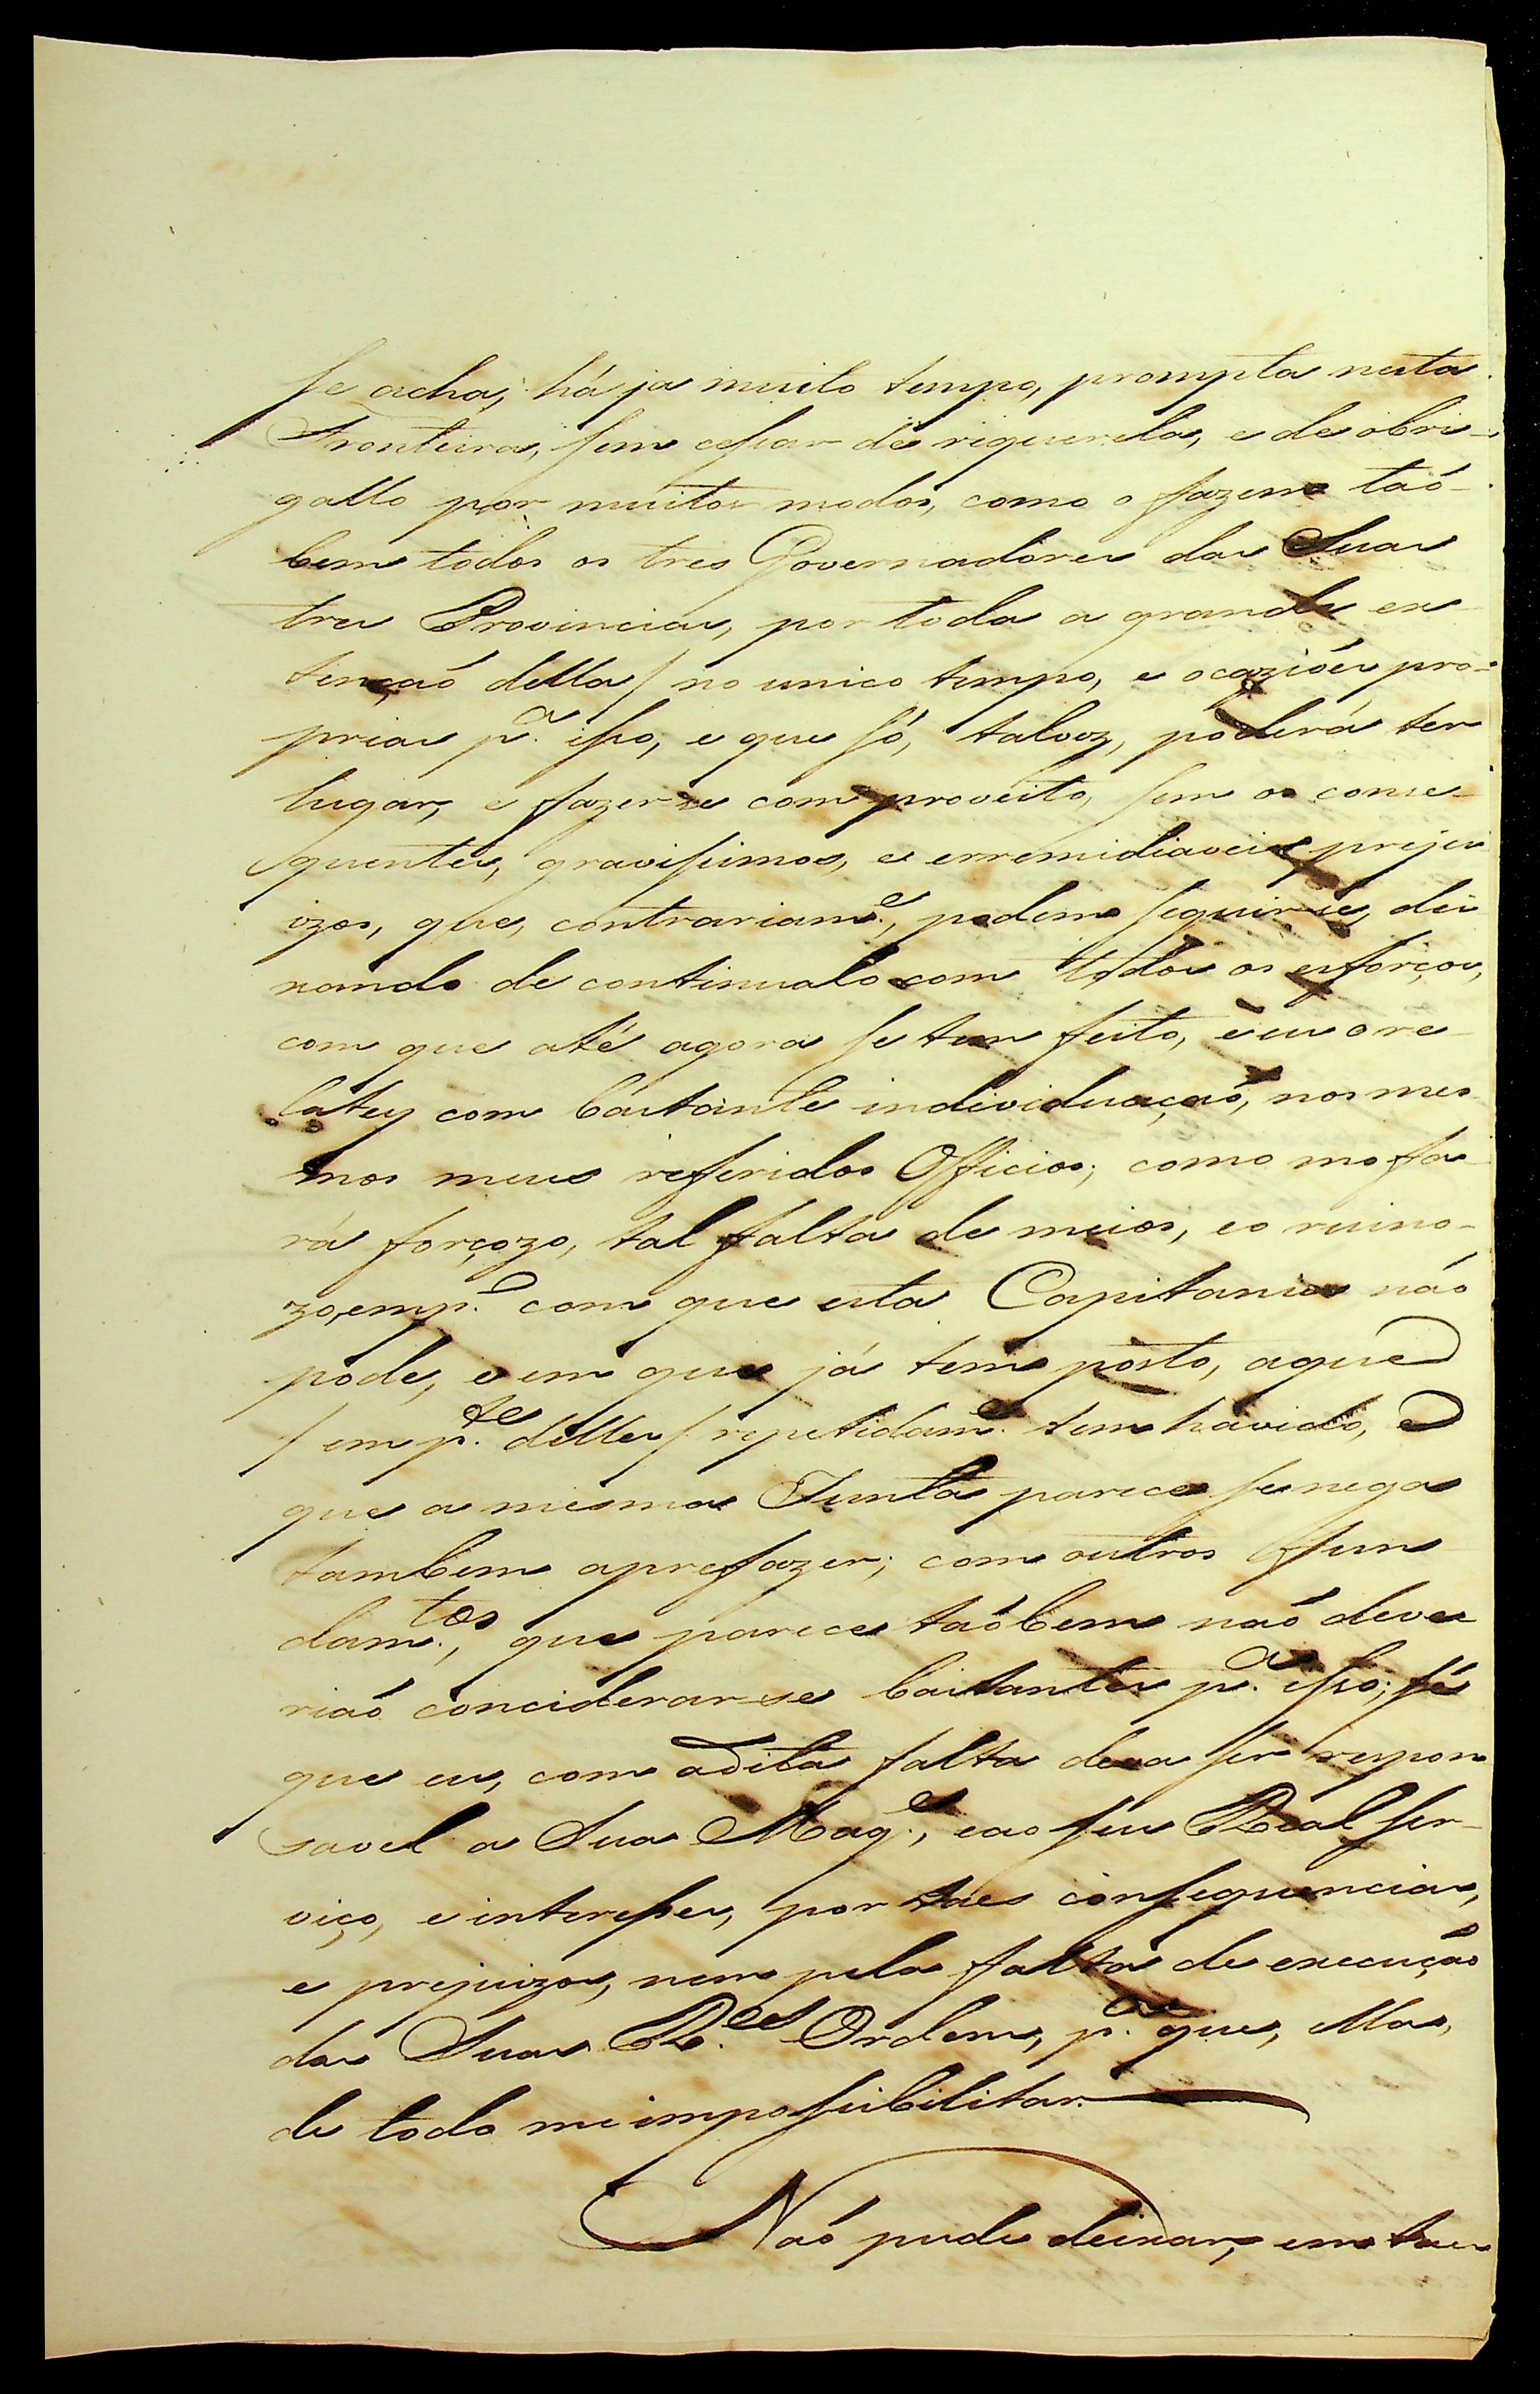 se acha, há ja muito tempo, prompta nesta
Fronteira, sem cessar de riquerela, e de obri-
gallo por muitos modos, como o fazem taõ-
bem todos os tres Governadores das Suas
tres Provincias, por toda a grande ex-
tençaõ dellas / no unico tempo, e ocaziões pro-
prias p.ª isso, e que só, talvez, poderá ter
lugar, e fazer-se com proveito, sem os conse-
quentes, gravissimos, e erremidiaveis prejui
izos, que, contrariam.e, podem seguir-se, dei
xando de continualo com todos os esforços,
com que até agora se tem feito, e eu o re-
latey com bastante individuaçaõ, nos mes
mos meus referidos Officios; como mo fa-
rá forçozo, tal falta de meios, e o ruino-
zo, emp.º com que esta Capitania não
pode, e em que já tem posto, aque
/ em p.te delles / repetidam.e tem havido, e
que a mesma Junta parece se nega
tambem a prefazer; com outros fun
dam.tos, que parece taõbem naõ deve-
riaõ conciderar-se bastantes p.ª isso; sé
que eu, com a dita falta deva ser respon
savel a Sua Mag.e, e ao seu Real Ser-
viço, e interesses, por taes consequencias,
e prejuizos, nem pela falta de execuçaõ
das Suas R.es Ordens, p.ª que, Ella,
de todo me impossibilitar.
Naõ pude deixar, em taes